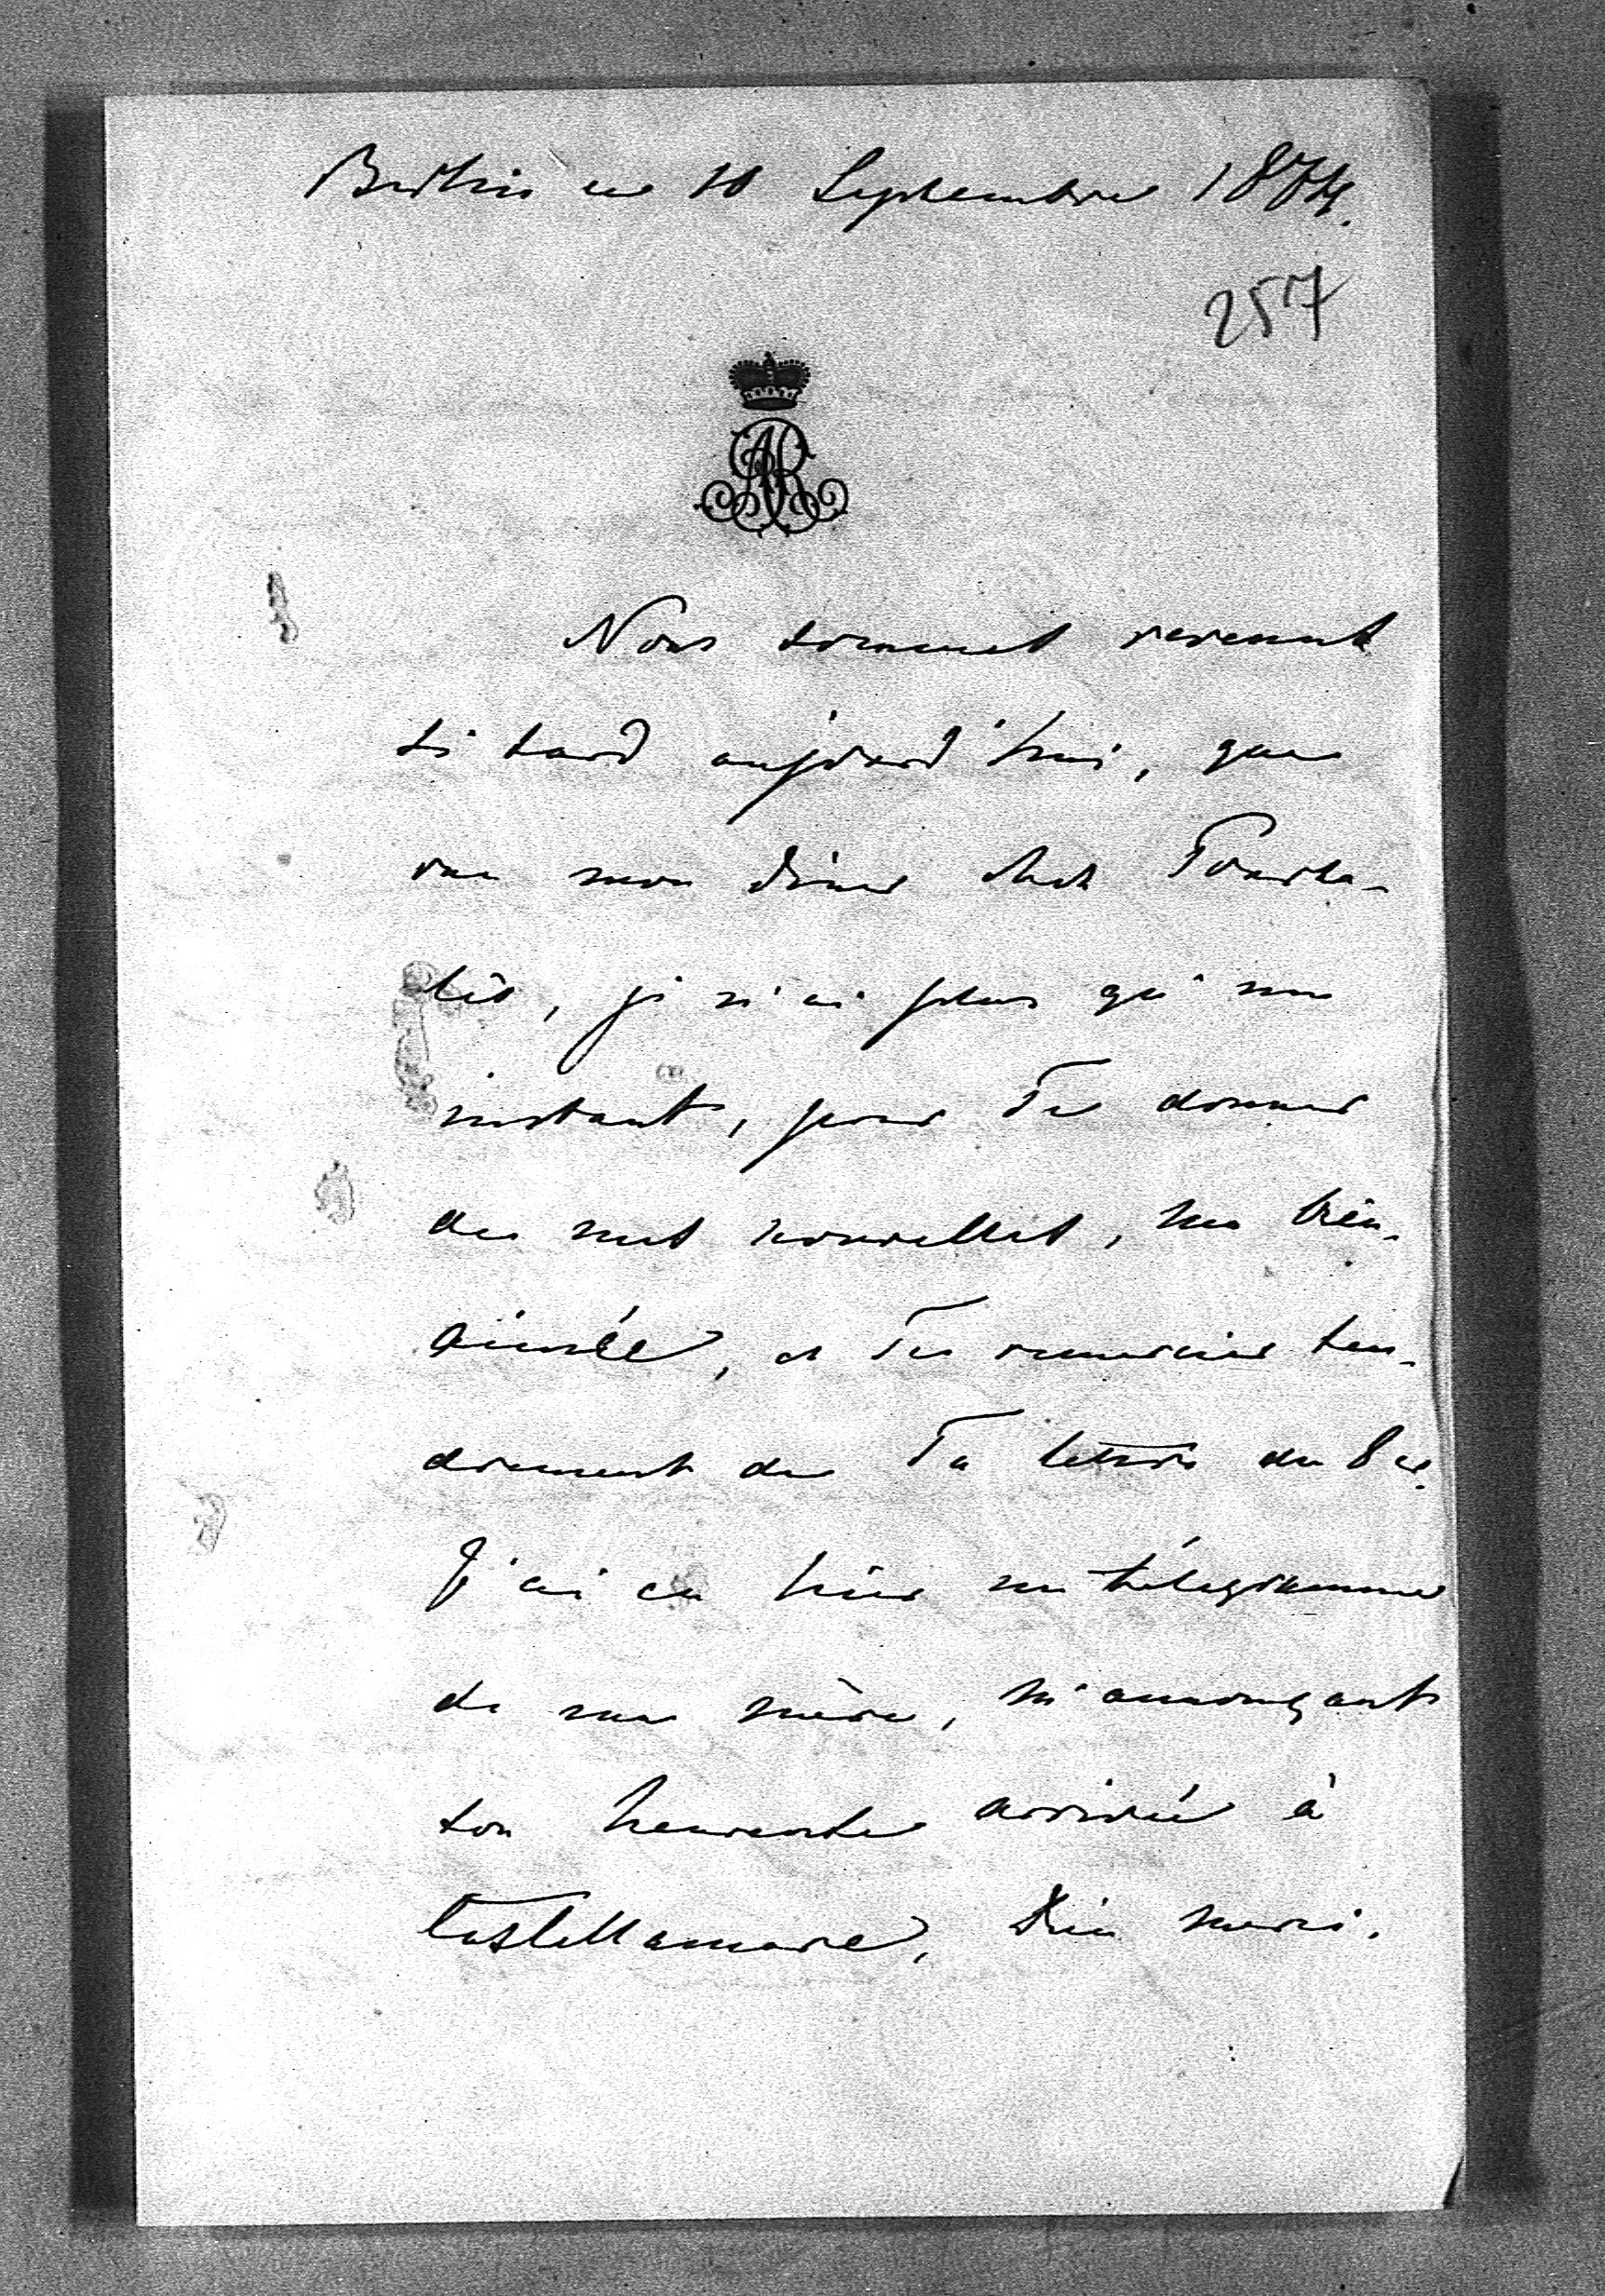 Berlin ce 10 Septembre 1874.
257
AR
Nous sommes revenus
si tard aujourd'hui, que
vu mon dîner chez Pourta-
lès, je n'ai plus qu'un
instant, pour Te donner
de mes nouvelles, ma bien-
aimée, et Te remercier ten-
drement de Ta lettre du 8 ct.
J'ai eu hier un télégramme
de ma mère, m'annonçant
son heureuse arrivée à
Castellamare, Dieu merci.